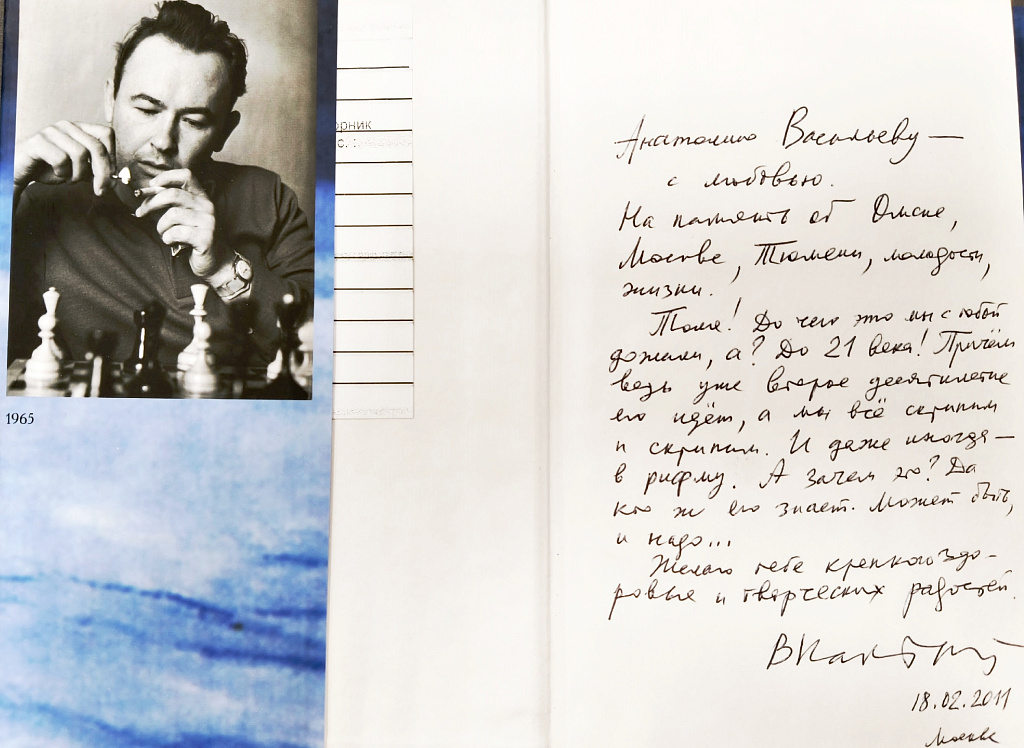 1965
орник
с. :
Анатолию Васильеву —
с любовью.
На память об Омске,
Москве, Тюмени, молодости,
жизни.
Толя! До чего это мы с тобой
дожили, а? До 21 века! Причём
ведь уже второе десятилетие
его идёт, а мы всё скрипим
и скрипим. И даже иногда —
в рифму. А зачем это? Да
кто ж его знает. Может быть,
и надо...
Желаю тебе крепкого здо-
ровья и творческих радостей.
18.02.2011
Москва